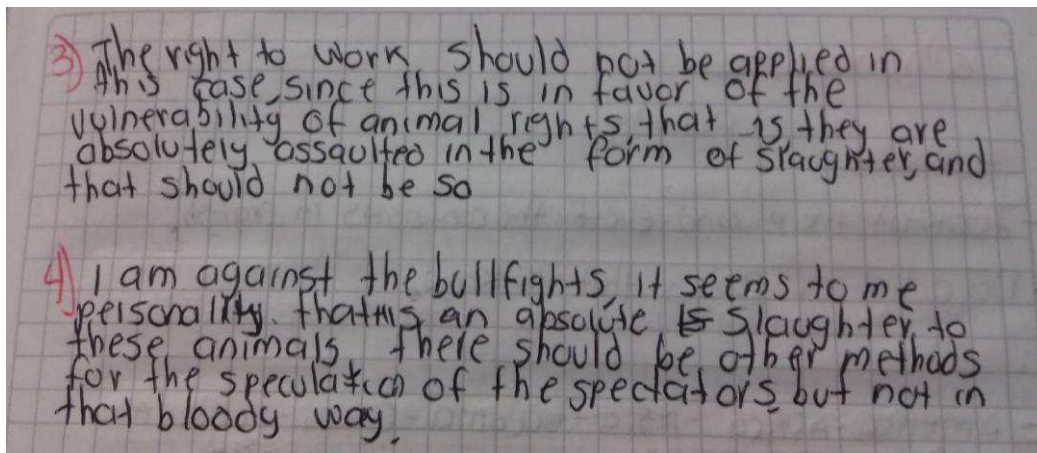 3) The right to work should not be applied in
this case, since this is in favor of the
vulnerability of animal rights, that is they are
absolutely assaulted in the form of slaughter, and
that should not be so
4) I am against the bullfights, it seems to me
personality. that is an absolute slaughter to
these animals, there should be other methods
for the speculation of the spectators, but not in
that bloody way.